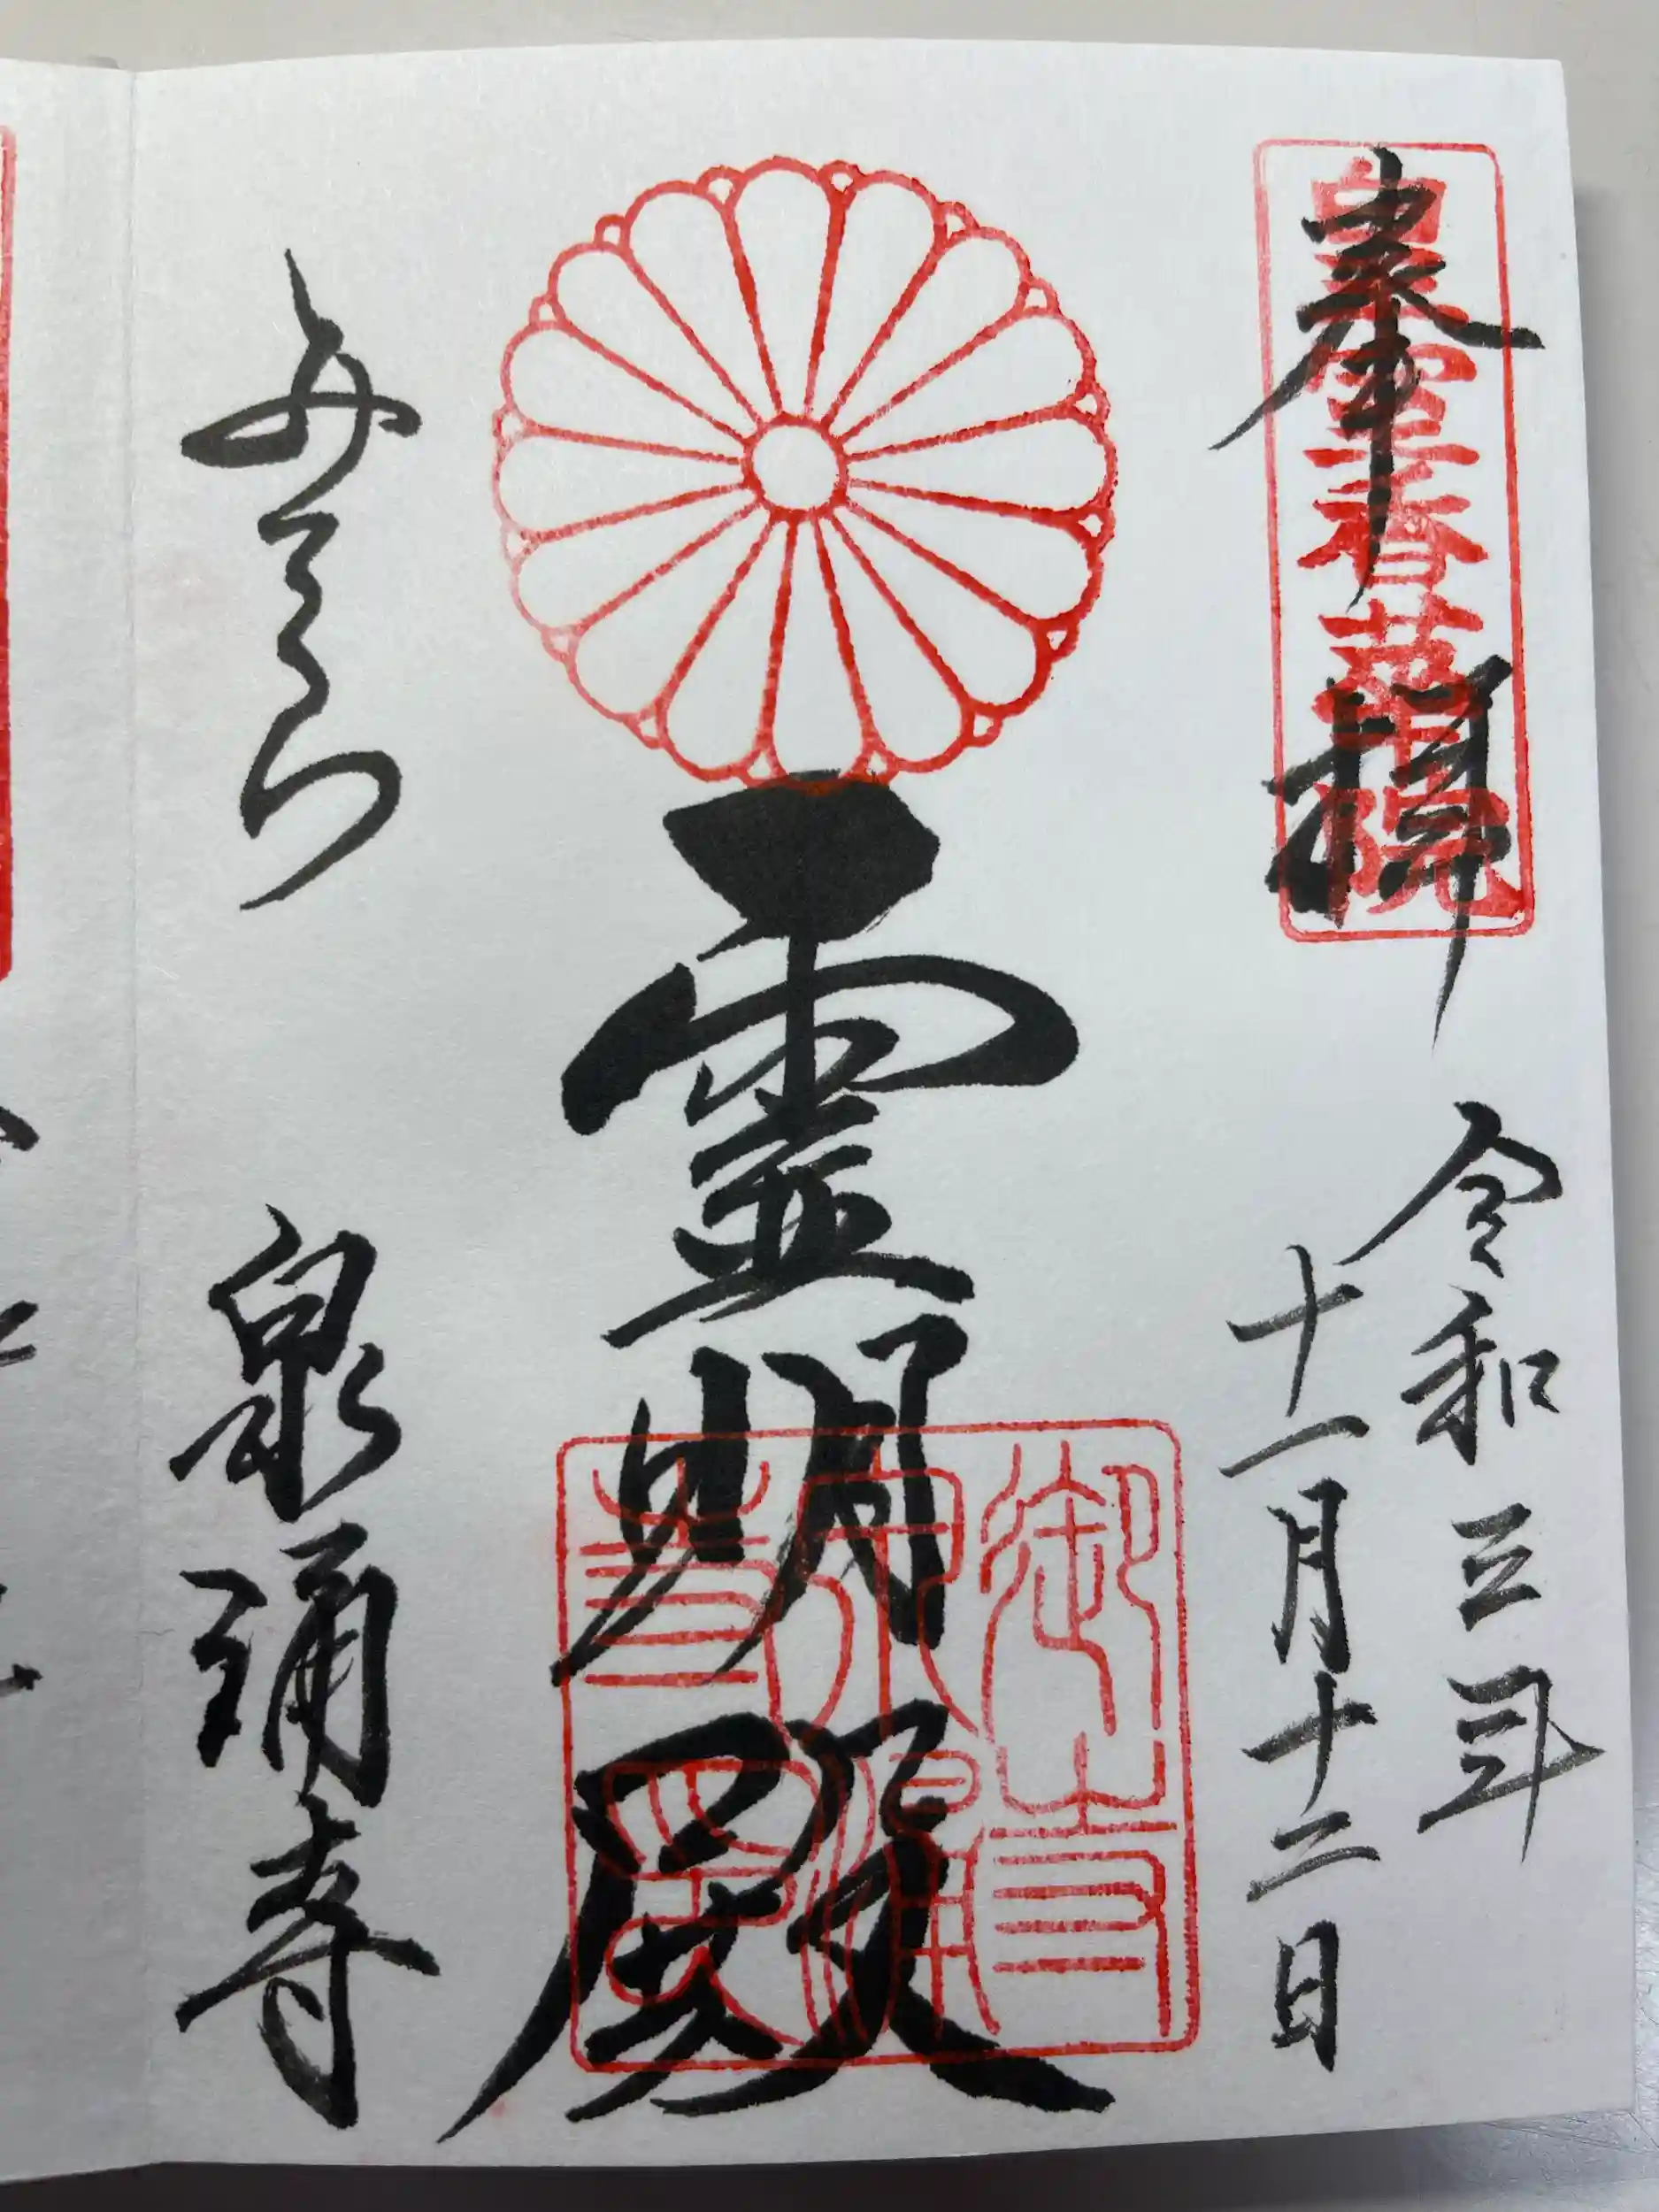 奉拝
皇室香華院
令和三年
十一月十二日
霊明殿
御寺泉涌
みてら
泉涌寺